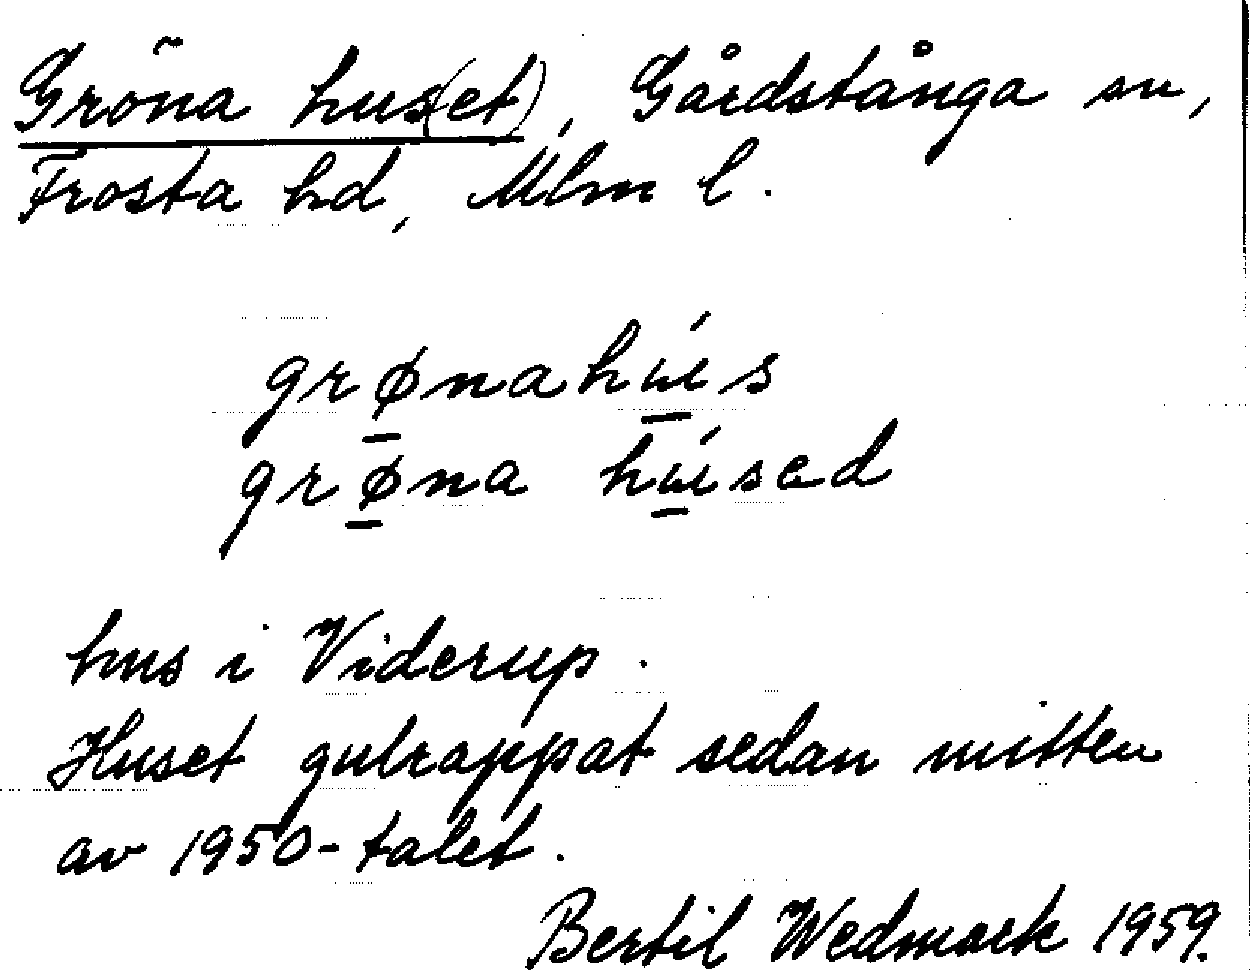 Gröna hus(et), Gårdstånga sn,
Frosta hd, Mlm l.
grø̱nahɯ̱́s
grø̱na hɯ̱́səd
hus i Viderup.
Huset gulrappat sedan mitten
av 1950-talet.
Bertil Wedmark 1959.